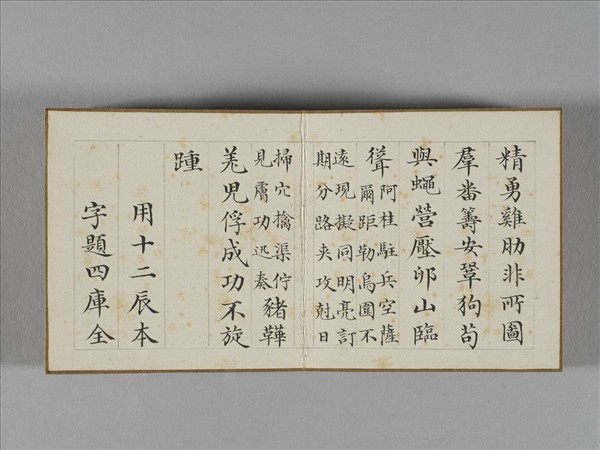 精勇雞肋非所圖
羣番籌安鞏狗苟
與蠅營壓卵山臨
聳
阿桂駐兵空薩
爾距勒烏圍不
遠現擬同明亮訂
期分路夾攻尅日
掃穴擒渠佇
見膚功迅奏
豬鞾
羌兒俘成功不旋
踵
用十二辰本
字題四庫全